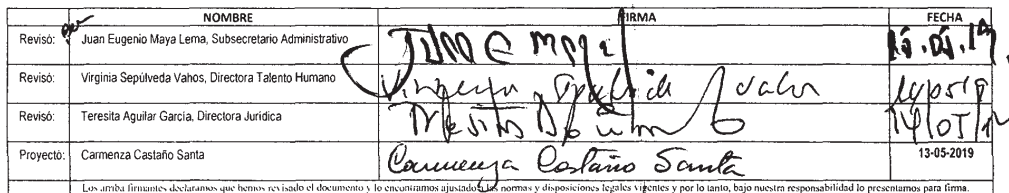 NOMBRE FIRMA FECHA
Revisó: Juan Eugenio Maya Lema, Subsecretario Administrativo
Revisó: Virginia Sepúlveda Vahos, Directora Talento Humano
Revisó: Teresita Aguilar García, Directora Jurídica
Proyectó: Carmenza Castaño Santa Carmenza Castaño Santa 13-05-2019
Los arriba firmantes declaramos que hemos revisado el documento y lo encontramos ajustado a las normas y disposiciones legales vigentes y por lo tanto, bajo nuestra responsabilidad lo presentamos para firma.